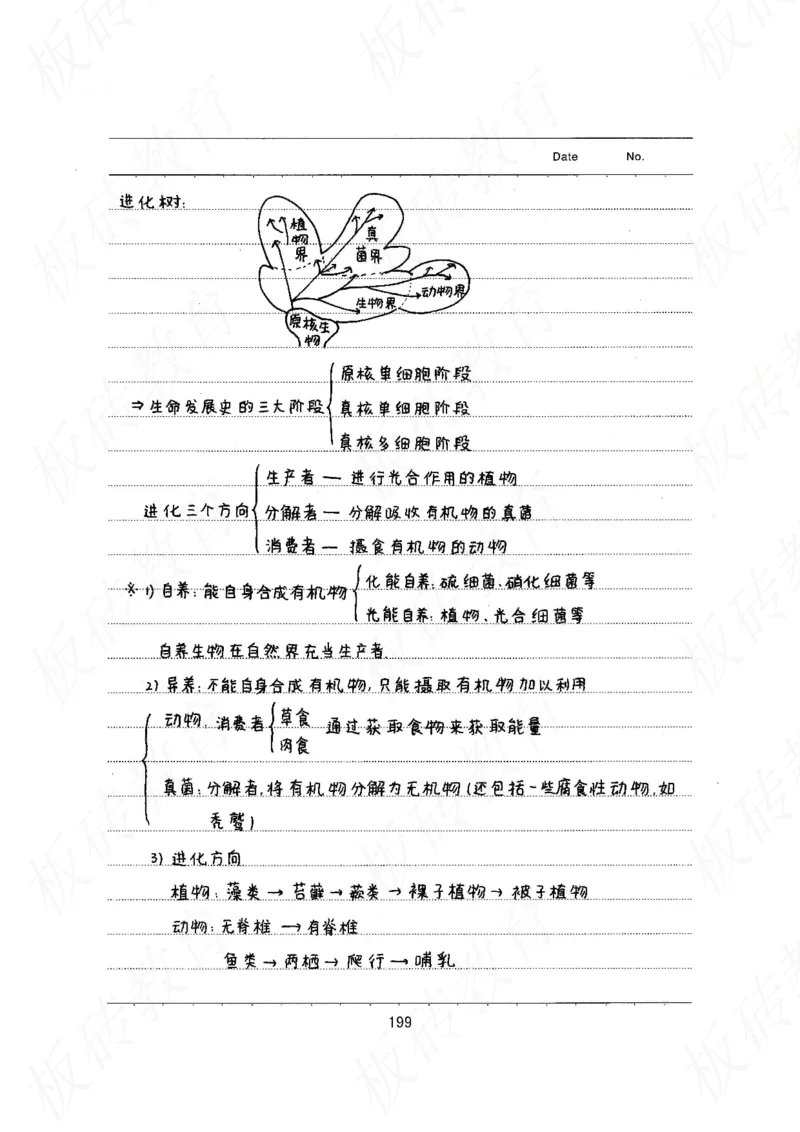 Date No.
进化树:
植物界
真菌界
动物界
生物界
原核生物
原核单细胞阶段
⇒生命发展史的三大阶段 真核单细胞阶段
真核多细胞阶段
生产者 — 进行光合作用的植物
进化三个方向 分解者 — 分解吸收有机物的真菌
消费者 — 摄食有机物的动物
※ 1) 自养: 能自身合成有机物 化能自养: 硫细菌、硝化细菌等
光能自养: 植物、光合细菌等
自养生物在自然界充当生产者.
2) 异养: 不能自身合成有机物, 只能摄取有机物加以利用
动物: 消费者 草食 通过获取食物来获取能量
肉食
真菌: 分解者, 将有机物分解为无机物(还包括一些腐食性动物, 如
秃鹫)
3) 进化方向
植物: 藻类 → 苔藓 → 蕨类 → 裸子植物 → 被子植物
动物: 无脊椎 → 有脊椎
鱼类 → 两栖 → 爬行 → 哺乳
199
板砖教育